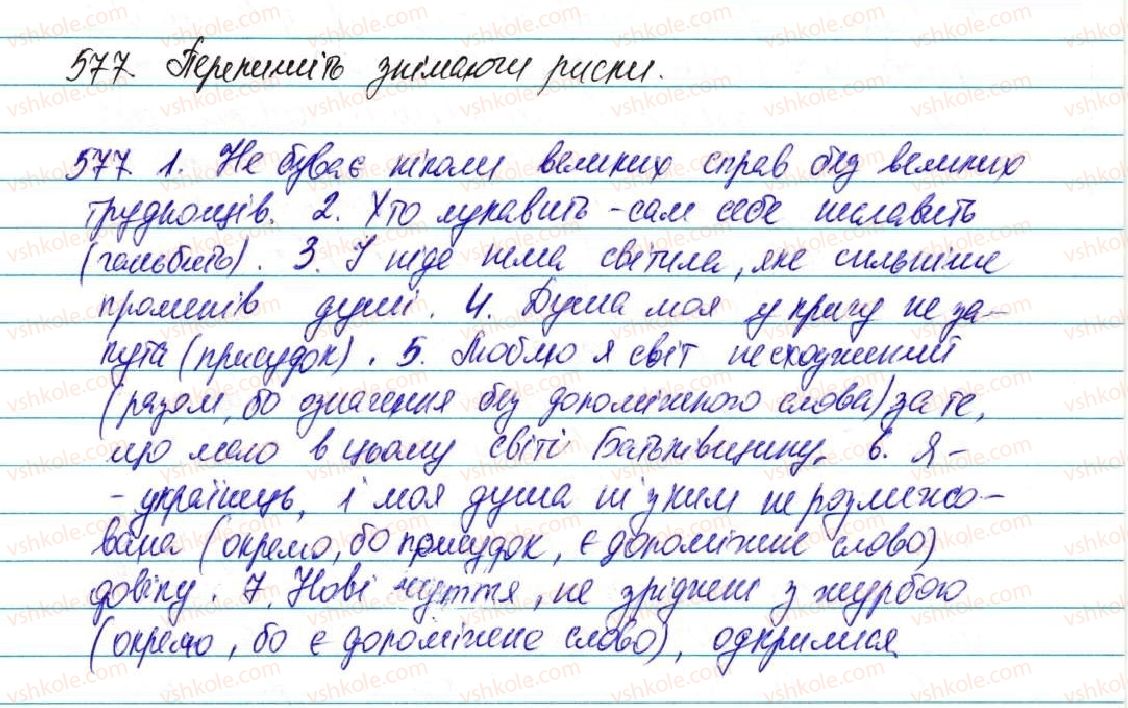 577. Перепишіть знімаючи риски.
577. 1. Не буває ніколи великих справ без великих
труднощів. 2. Хто лукавить - сам себе неславить
(ганьбить). 3. І ніде нема світила, яке сильніше
променів душі. 4. Душа моя у кригу не за-
кута (присудок). 5. Люблю я світ несходжений
(разом, бо означення без допоміжного слова) за те,
що маю в цьому світі Батьківщину. 6. Я -
- українець, і моя душа ні з ким не розлинко-
вана (окремо, бо присудок, є допоміжне слово)
довіку. 7. Нові чуття, не зріднені з журбою
(окремо, бо є допоміжне слово), одкрилися